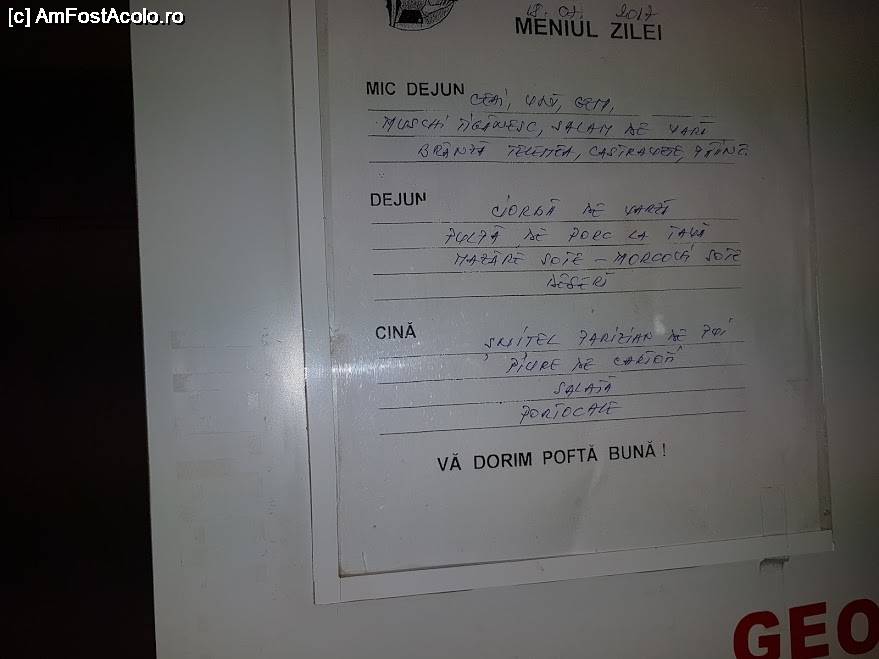 [c] AmFostAcolo.ro
18.07.2017
MENIUL ZILEI
MIC DEJUN
CEAI, UNT, GEM,
MUSCHI TIGĂNESC, SALAM DE VARĂ
BRÂNZĂ TELEMEA, CASTRAVETE, PÂINE
DEJUN
CIORBĂ DE VARZĂ
PULPĂ DE PORC LA TAVĂ
MAZĂRE SOTE - MORCOVI SOTE
DESERT
CINĂ
ȘNIȚEL PARIZIAN DE PUI
PIURE DE CARTOFI
SALATĂ
PORTOCALE
VĂ DORIM POFTĂ BUNĂ!
GEO